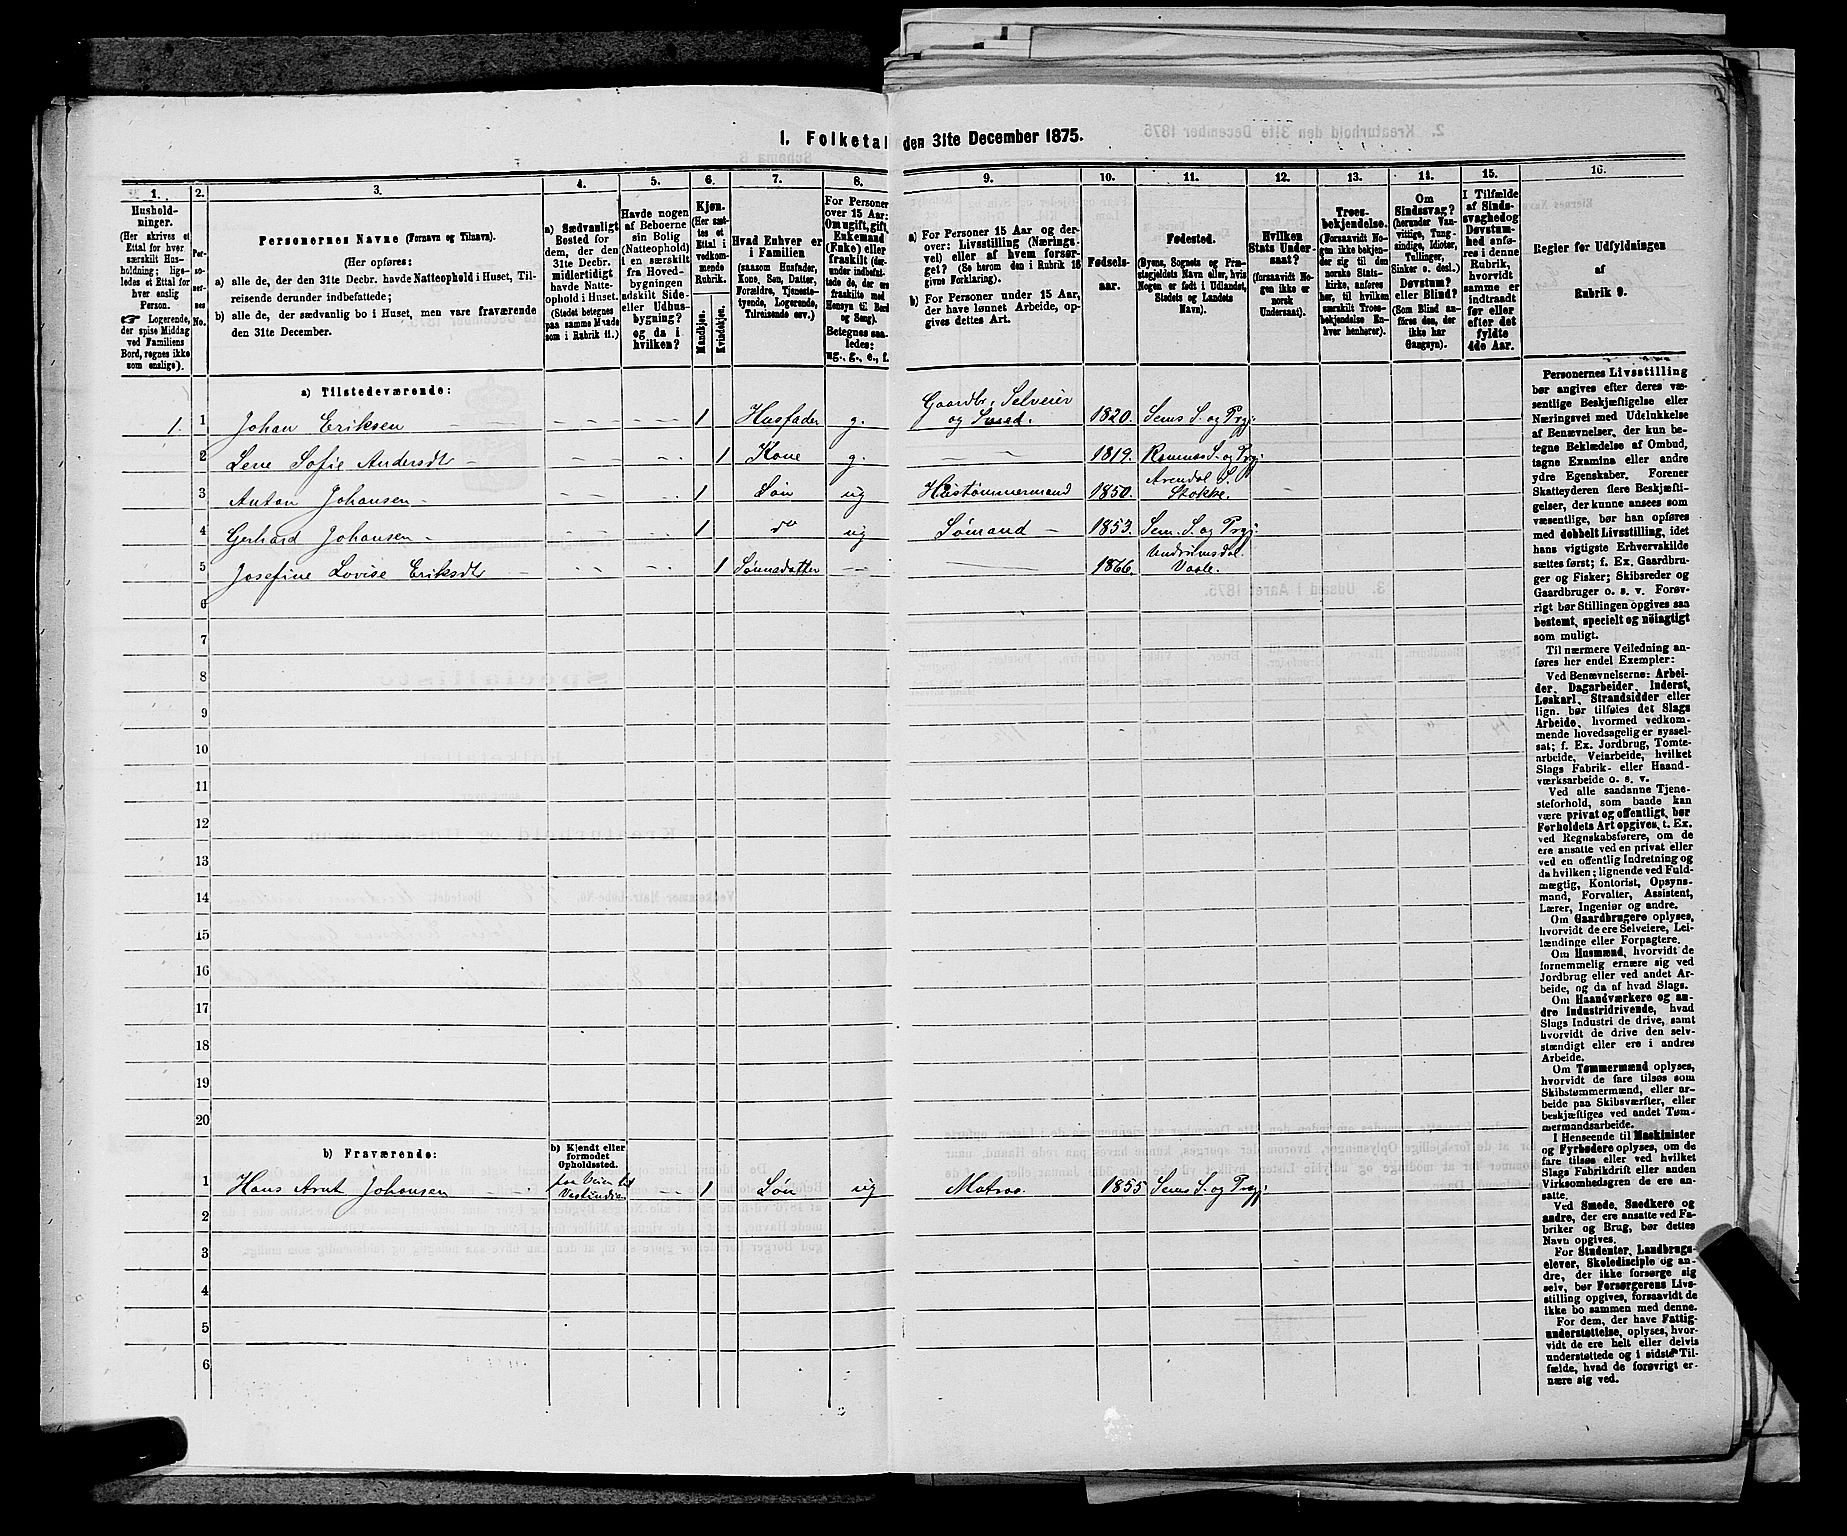 1. Folketal den 31te December 1875.
1.
Hushold-
ninger.
(Her skrives et
Ettal for hver
særskilt Hus-
holdning; lige-
ledes et Ettal for
hver enslig
Person.
☞ Logerende,
der spise Middag
ved Familiens
Bord, regnes ikke
som enslige).
2.
Per-
so-
ner-
nes
No.
3.
Personernes Navne (Fornavn og Tilnavn).
(Her opføres:
a) alle de, der den 31te Decbr. havde Natteophold i Huset, Til-
reisende derunder indbefattede;
b) alle de, der sædvanlig bo i Huset, men vare fraværende
den 31te December.
4.
a) Sædvanligt
Bosted for
dem, der den
31te Decbr.
midlertidigt
havde Natte-
ophold i Huset.
(Stedet betegnes
paa samme Maade
som i Rubrik 11.)
5.
Havde nogen
af Beboerne
sin Bolig
(Natteophold)
i en særskilt
fra Hoved-
bygningen
adskilt Side-
eller Udhus-
bygning?
og da i
hvilken?
6.
Kjøn.
(Her sæt-
tes et
Ettal i
vedkom-
mende
Rubrik.
Mandkjøn.
Kvindekjøn.
7.
Hvad Enhver er
i Familien
(saasom Husfader,
Kone, Søn, Datter,
Forældre, Tjeneste-
tyende, Logerende,
Tilreisende osv.)
8.
For Personer
over 15 Aar:
Om ugift, gift,
Enkemand
(Enke) eller
fraskilt (der-
under indbefat-
tede de, der ere
fraskilte med
Hensyn til Bord
og Seng).
Betegnes saa-
ledes:
ug., g., e., f.
9.
a) For Personer 15 Aar og der-
over: Livsstilling (Nærings-
vei) eller af hvem forsør-
get? (Se herom den i Rubrik 16
givne Forklaring).
b) For Personer under 15 Aar,
der have lønnet Arbeide, op-
gives dettes Art.
10.
Fødsels-
aar.
11.
Fødested.
(Byens, Sognets og Præ-
stegjeldets Navn eller, hvis
Nogen er født i Udlandet,
Stedets og Landets
Navn).
12.
Hvilken
Stats Under-
saat?
(forsaavidt No-
gen ikke er
norsk
Undersaat).
13.
Troes-
bekjendelse.
(Forsaavidt No-
gen ikke bekjen-
der sig til den
norske Stats-
kirke, anføres
her, til hvilken
særskilt Troes-
bekjendelse En-
hver henhører).
14.
Om
Sindssvag?
(herunder Van-
vittige, Tung-
sindige, Idioter,
Tullinger,
Sinker o. desl.)
Døvstum?
eller Blind?
(Som Blind an-
føres den, der
ikke har
Gangsyn).
15.
I Tilfælde
af Sinds-
svaghed og
Døvstum-
hed anfø-
res i denne
Rubrik,
hvorvidt
samme er
indtraadt
før eller
efter det
fyldte
4de Aar.
16.
Regler for Udfyldningen
af
Rubrik 9.
a) Tilstedeværende:
1. 1 Johan Eriksen — — 1 Husfader g. Gaardbr. Selveier og Smed. 1820. Sems S. og Prgj.
2 Lene Sofie Andersdtr — — 1 Kone g. — — 1819. Ramnes S. og Prgj.
3 Anton Johansen — — 1 Søn ug Hustømmermand 1850. Arendal S. Stokke.
4 Gerhard Johansen — — 1 do ug Sømand — 1853. Sem. S. og Prgj.
5 Josefine Lovise Eriksdtr — — 1 Sønnedatter — — 1866. Undrumsdal Vaale.
6
7
8
9
10
11
12
13
14
15
16
17
18
19
20
b) Fraværende:
b) Kjendt eller
formodet
Opholdssted.
1 Hans Arnt Johansen — paa Veien til Vestindien — 1 Søn ug Matros 1855 Sems S. og Prgj.
2
3
4
5
6
Personernes Livsstilling
bør angives efter deres væ-
sentlige Beskjæftigelse eller
Næringsvei med Udelukkelse
af Benævnelser, der kun be-
tegne Beklædelse af Ombud,
tagne Examina eller andre
ydre Egenskaber. Forener
Skatteyderen flere Beskjæfti-
gelser, der kunne ansees som
væsentlige, bør han opføres
med dobbelt Livsstilling, idet
hans vigtigste Erhvervskilde
sættes først; f. Ex. Gaardbru-
ger og Fisker; Skibsreder og
Gaardbruger o. s. v. Forøv-
rigt bør Stillingen opgives saa
bestemt, specielt og nøiagtigt
som muligt.
Til nærmere Veiledning an-
føres her endel Exempler:
Ved Benævnelserne: Arbei-
der, Dagarbeider, Inderst,
Løskarl, Strandsidder eller
lign. bør tilføies det Slags
Arbeide, hvormed vedkom-
mende hovedsagelig er syssel-
sat; f. Ex. Jordbrug, Tomte-
arbeide, Veiarbeide, hvilket
Slags Fabrik- eller Haand-
værksarbeide o. s. v.
Ved alle saadanne Tjene-
steforhold, som baade kan
være privat og offentligt, bør
Forholdets Art opgives, t. Ex.
ved Regnskabsførere, om de
ere ansatte ved en privat eller
ved en offentlig Indretning og
da hvilken; lignende ved Fuld-
mægtig, Kontorist, Opsyns-
mand, Forvalter, Assistent,
Lærer, Ingeniør og andre.
Om Gaardbrugere oplyses,
hvorvidt de ere Selveiere, Lei-
lændinge eller Forpagtere.
Om Husmænd, hvorvidt de
fornemmelig ernære sig ved
Jordbrug eller ved andet Ar-
beide, og da af hvad Slags.
Om Haandværkere og an-
dre Industridrivende, hvad
Slags Industri de drive, samt
hvorvidt de drive den selv-
stændigt eller ere i andres
Arbeide.
Om Tømmermænd oplyses,
hvorvidt de fare tilsøs som
Skibstømmermænd, eller ar-
beide paa Skibsværfter, eller
beskjæftiges ved andet Tøm-
mermandsarbeide.
I Henseende til Maskinister
og Fyrbødere oplyses, om de
fare tilsøs eller ved hvilket
Slags Fabrikdrift eller anden
Virksomhedsgren de ere an-
satte.
Ved Smede, Snedkere og
andre, der ere ansatte ved Fa-
briker og Brug, bør dettes
Navn opgives.
For Studenter, Landbrugs-
elever, Skoledisciple og an-
dre, der ikke forsørge sig
selv, bør Forsørgerens Livs-
stilling opgives, forsaavidt de
ikke bo sammen med denne.
For dem, der have Fattig-
understøttelse, oplyses, hvor-
vidt de ere helt eller delvis
understøttede og i sidste Til-
fælde, hvad de forøvrigt er-
nære sig ved.